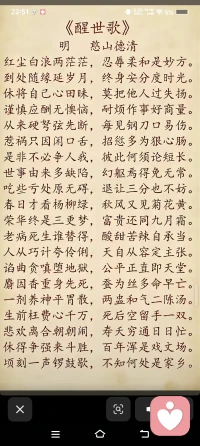 22:51
《醒世歌》
明 憨山德清
红尘白浪两茫茫，忍辱柔和是妙方。
到处随缘延岁月，终身安分度时光。
休将自己心田昧，莫把他人过失扬。
谨慎应酬无懊恼，耐烦作事好商量。
从来硬弩弦先断，每见钢刀口易伤。
惹祸只因闲口舌，招愆多为狠心肠。
是非不必争人我，彼此何须论短长。
世事由来多缺陷，幻躯焉得免无常。
吃些亏处原无碍，退让三分也不妨。
春日才看杨柳绿，秋风又见菊花黄。
荣华终是三更梦，富贵还同九月霜。
老病死生谁替得，酸甜苦辣自承当。
人从巧计夸伶俐，天自从容定主张。
谄曲贪嗔堕地狱，公平正直即天堂。
麝因香重身先死，蚕为丝多命早亡。
一剂养神平胃散，两盅和气二陈汤。
生前枉费心千万，死后空留手一双。
悲欢离合朝朝闹，寿夭穷通日日忙。
休得争强来斗胜，百年浑是戏文场。
顷刻一声锣鼓歇，不知何处是家乡。